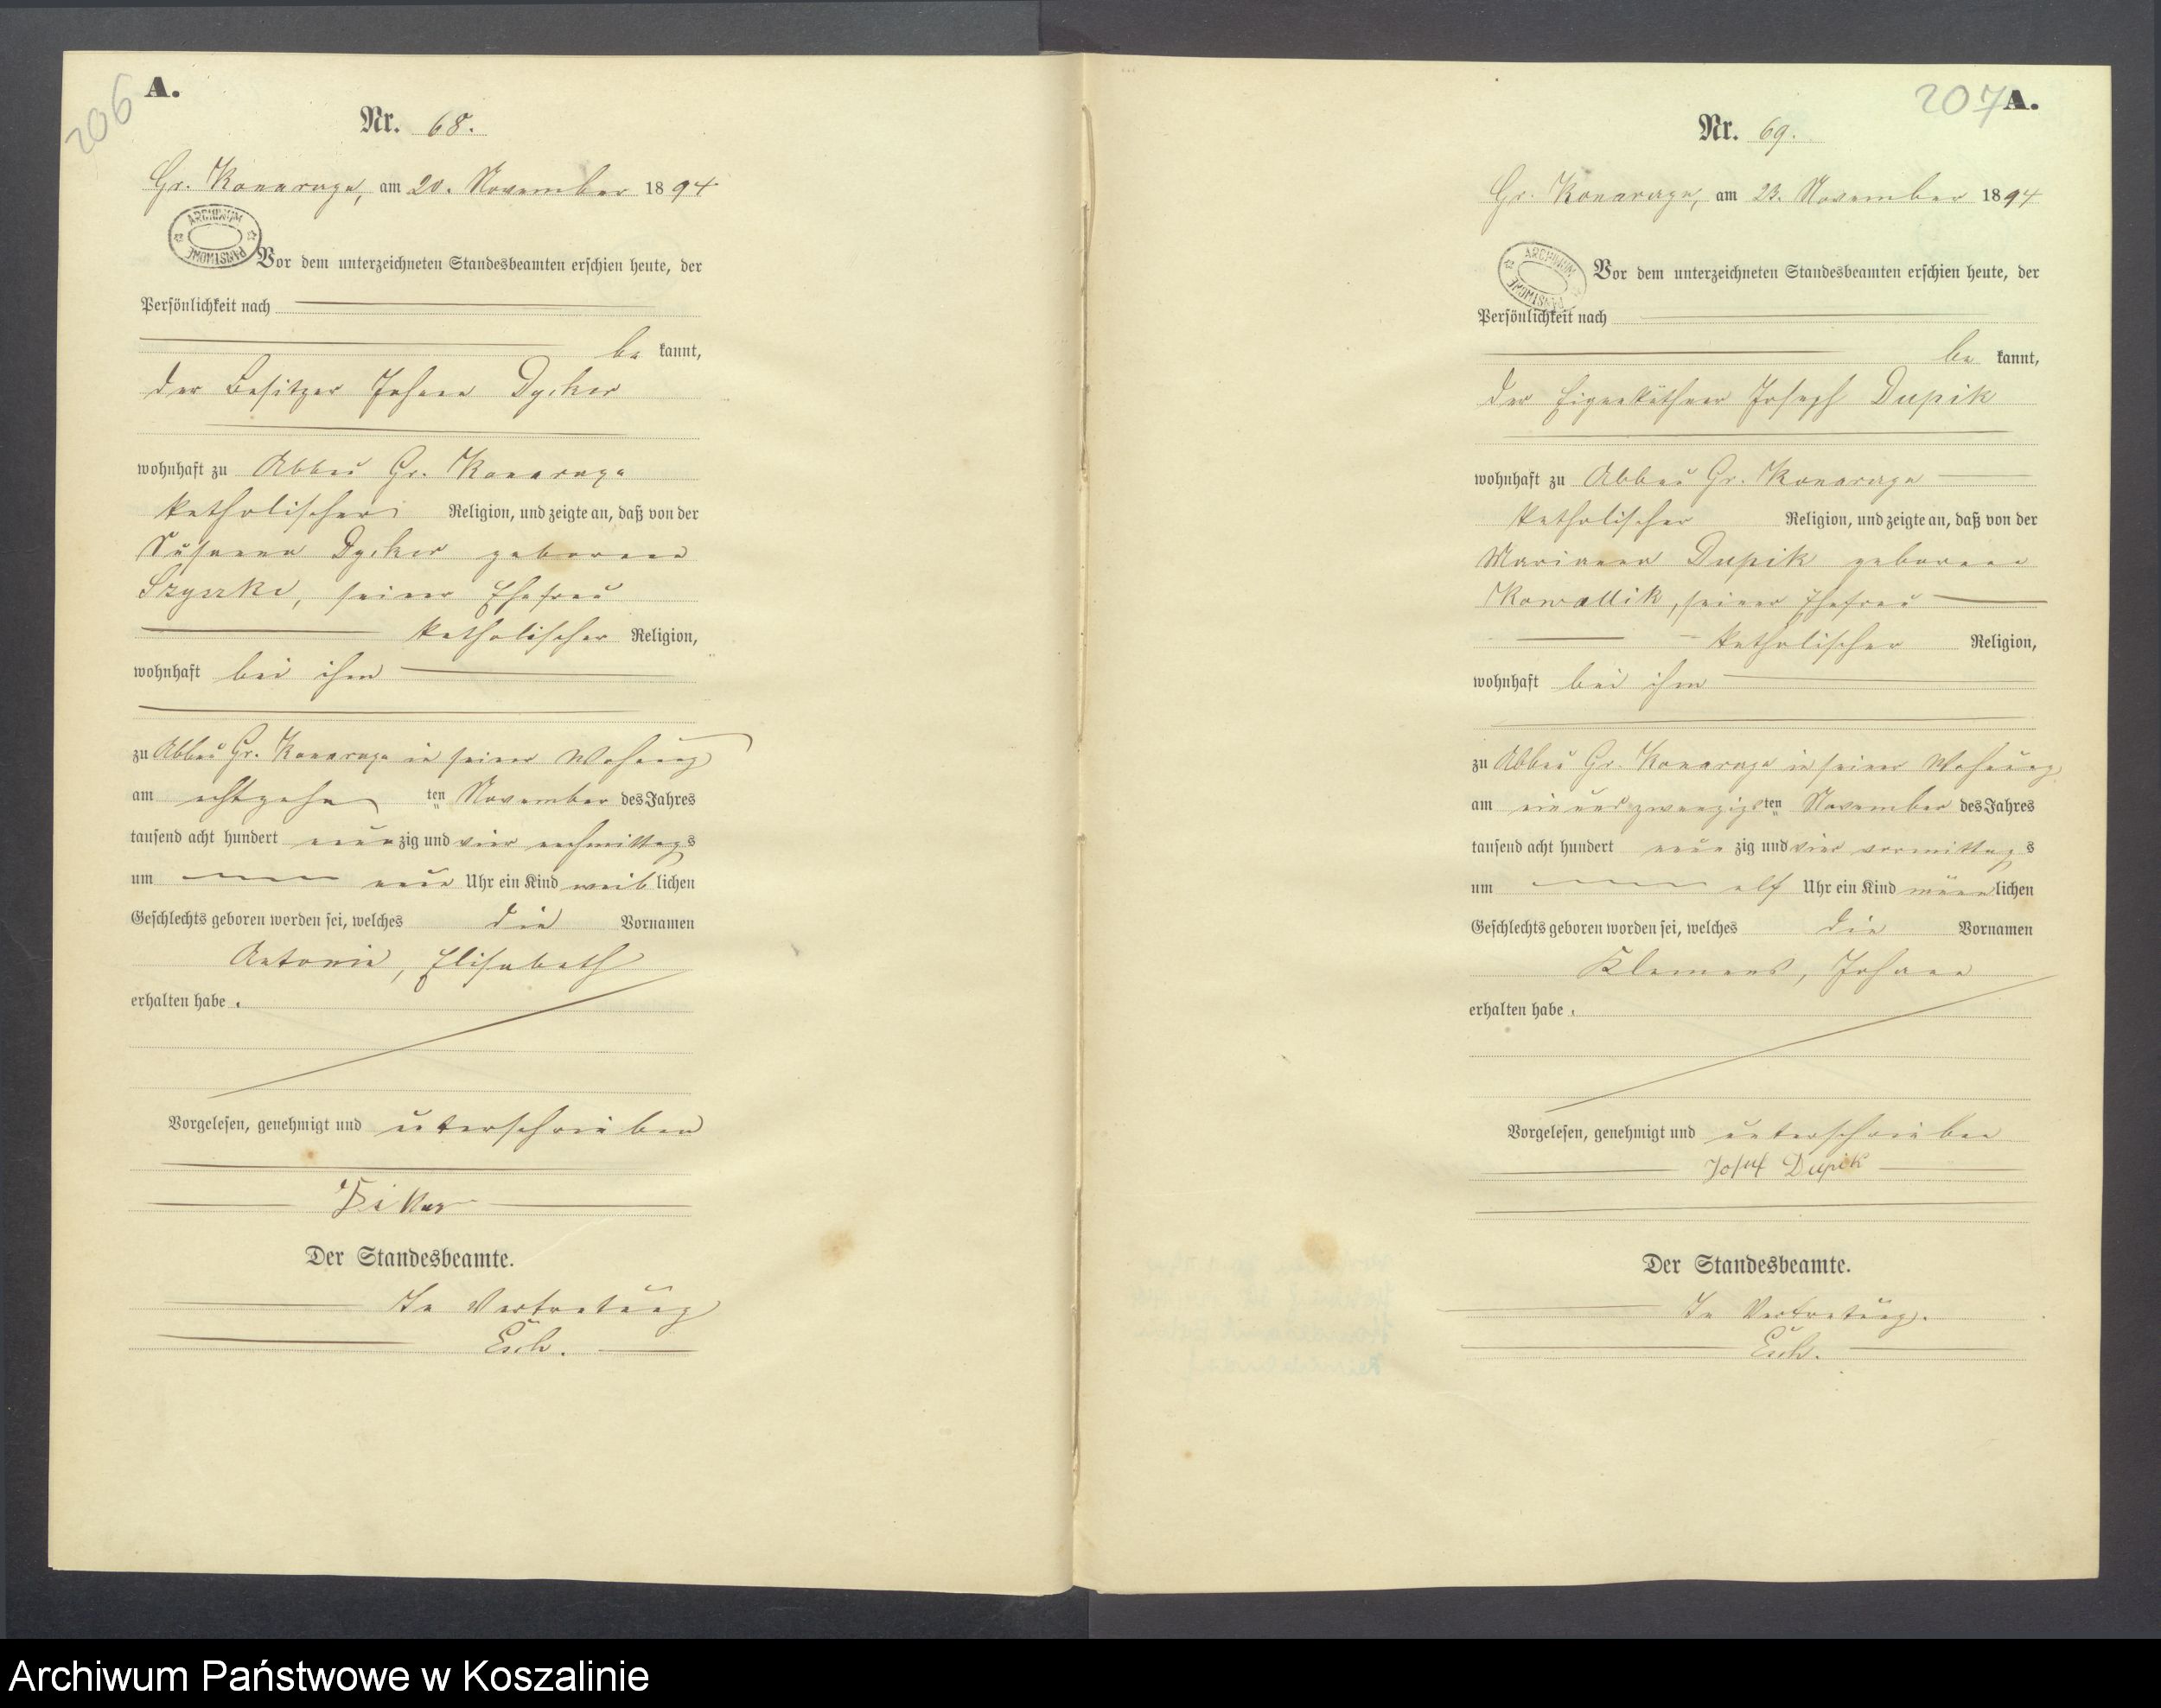 206
A.
Nr. 68.
Gr. Konarczyn, am 20. November 1894
ARCHIWUM PAŃSTWOWE
Vor dem unterzeichneten Standesbeamten erschien heute, der
Persönlichkeit nach
be kannt,
der Besitzer Johann
wohnhaft zu Abbau Gr. Konarczyn
katholischer Religion, und zeigte an, daß von der
Susanna geborene
seiner Ehefrau
katholischer Religion,
wohnhaft bei ihm
zu Abbau Gr. Konarczyn in seiner Wohnung
am achtzehn ten November des Jahres
tausend acht hundert neunzig und vier nachmittags
um neun Uhr ein Kind weiblichen
Geschlechts geboren worden sei, welches die Vornamen
Antonie, Elisabeth
erhalten habe.
Vorgelesen, genehmigt und unterschrieben
Der Standesbeamte.
In Vertretung
207 A.
Nr. 69.
Gr. Konarczyn, am 23. November 1894
ARCHIWUM PAŃSTWOWE
Vor dem unterzeichneten Standesbeamten erschien heute, der
Persönlichkeit nach
be kannt,
der Eigenkäthner Joseph Dupik
wohnhaft zu Abbau Gr. Konarczyn
katholischer Religion, und zeigte an, daß von der
Marianna Dupik geborene
Kowallik, seiner Ehefrau
katholischer Religion,
wohnhaft bei ihm
zu Abbau Gr. Konarczyn in seiner Wohnung
am einundzwanzigsten November des Jahres
tausend acht hundert neun zig und vier vormittags
um elf Uhr ein Kind männlichen
Geschlechts geboren worden sei, welches die Vornamen
Klemens, Johann
erhalten habe.
Vorgelesen, genehmigt und unterschrieben
Josef Dupik
Der Standesbeamte.
In Vertretung.
Archiwum Państwowe w Koszalinie